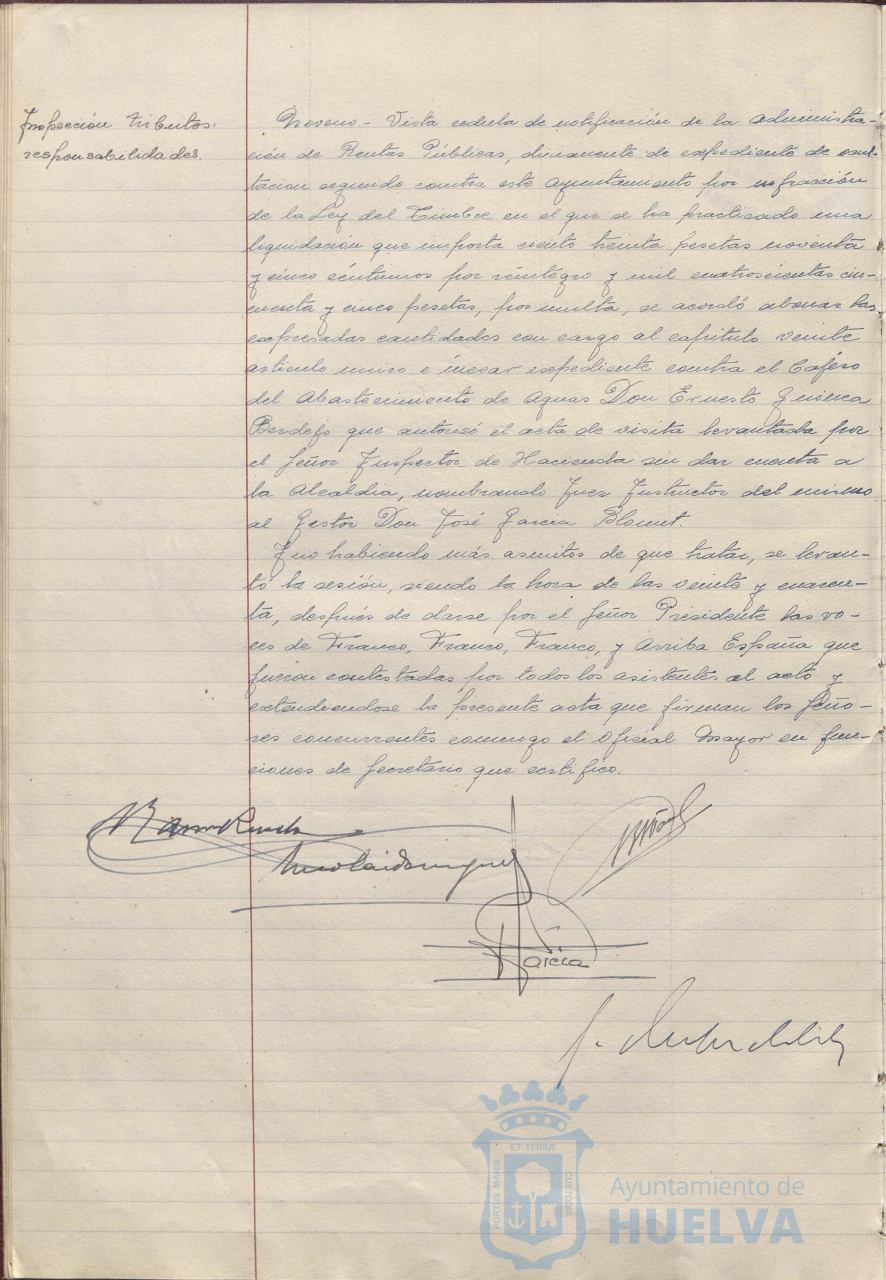 Inspección tributos:
responsabilidades.
Noveno.- Vista cedula de notificación de la Administra-
ción de Rentas Públicas, dimanente de expediente de ocul-
tacion seguido contra este Ayuntamiento por infracción
de la Ley del Timbre en el que se ha practicado una
liquidación que importa ciento treinta pesetas noventa
y cinco céntimos por reintegro y mil cuatrocientas cin-
cuenta y cinco pesetas, por multa, se acordó abonar las
expresadas cantidades con cargo al capitulo veinte
articulo unico e incoar expediente contra el Cajero
del Abastecimiento de Aguas Don Ernesto
que autorisó el acta de visita levantada por
el Señor Inspector de Hacienda sin dar cuenta a
la Alcaldia, nombrando Juez Instructor del mismo
al Gestor Don José Garcia Blount.
Y no habiendo más asuntos de que tratar, se levan-
tó la sesión, siendo la hora de las veinte y cuaren-
ta, después de darse por el Señor Presidente las vo-
ces de Franco, Franco, Franco, y Arriba España que
fueron contestadas por todos los asistentes al acto y
extendiendose la presente acta que firman los Seño-
res concurrentes conmigo el Oficial Mayor en fun-
ciones de Secretario que certifico.
Garcia
ET TERRÆ
PORTUS MARIS
CUSTODIA
Ayuntamiento de
HUELVA